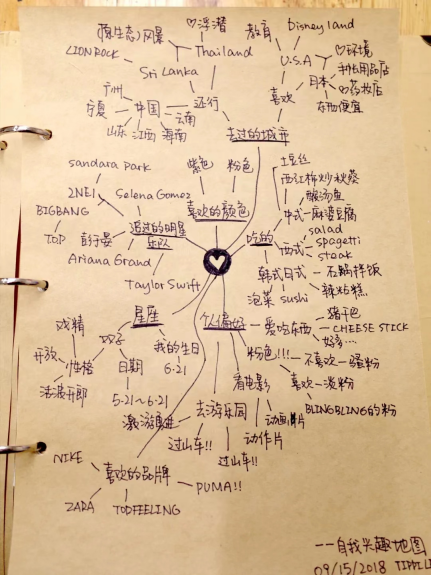 (原生态)风景
♡浮潜
LION ROCK
Thailand
Sri Lanka
教育
Disney land
U.S.A
♡环境
喜欢
日本
药妆店
东西便宜
广州
宁夏
中国
还行
云南
山东
江西
海南
去过的城市
紫色
粉色
喜欢的颜色
sandara park
2NE1
Selena Gomez
BIGBANG
追过的明星
乐队
TOP
彭于晏
Ariana Grand
Taylor Swift
吃的
土豆丝
西红柿炒秋葵
酸汤鱼
中式
麻婆豆腐
西式
salad
spagetti
steak
韩式日式
石锅拌饭
泡菜
sushi
辣粘糕
星座
戏精
双子
我的生日
6.21
开放
性格
日期
活波开郎
5.21~6.21
个人偏好
爱吃东西
猪干巴
CHEESE STICK
好多…
粉色!!!
不喜欢
骚粉
喜欢
淡粉
BLINGBLING的粉
看电影
动画片
动作片
去游乐园
激流勇进
过山车!!
过山车!!
NIKE
喜欢的品牌
PUMA!!
ZARA
TOPFEELING
——自我兴趣地图
09/15/2018